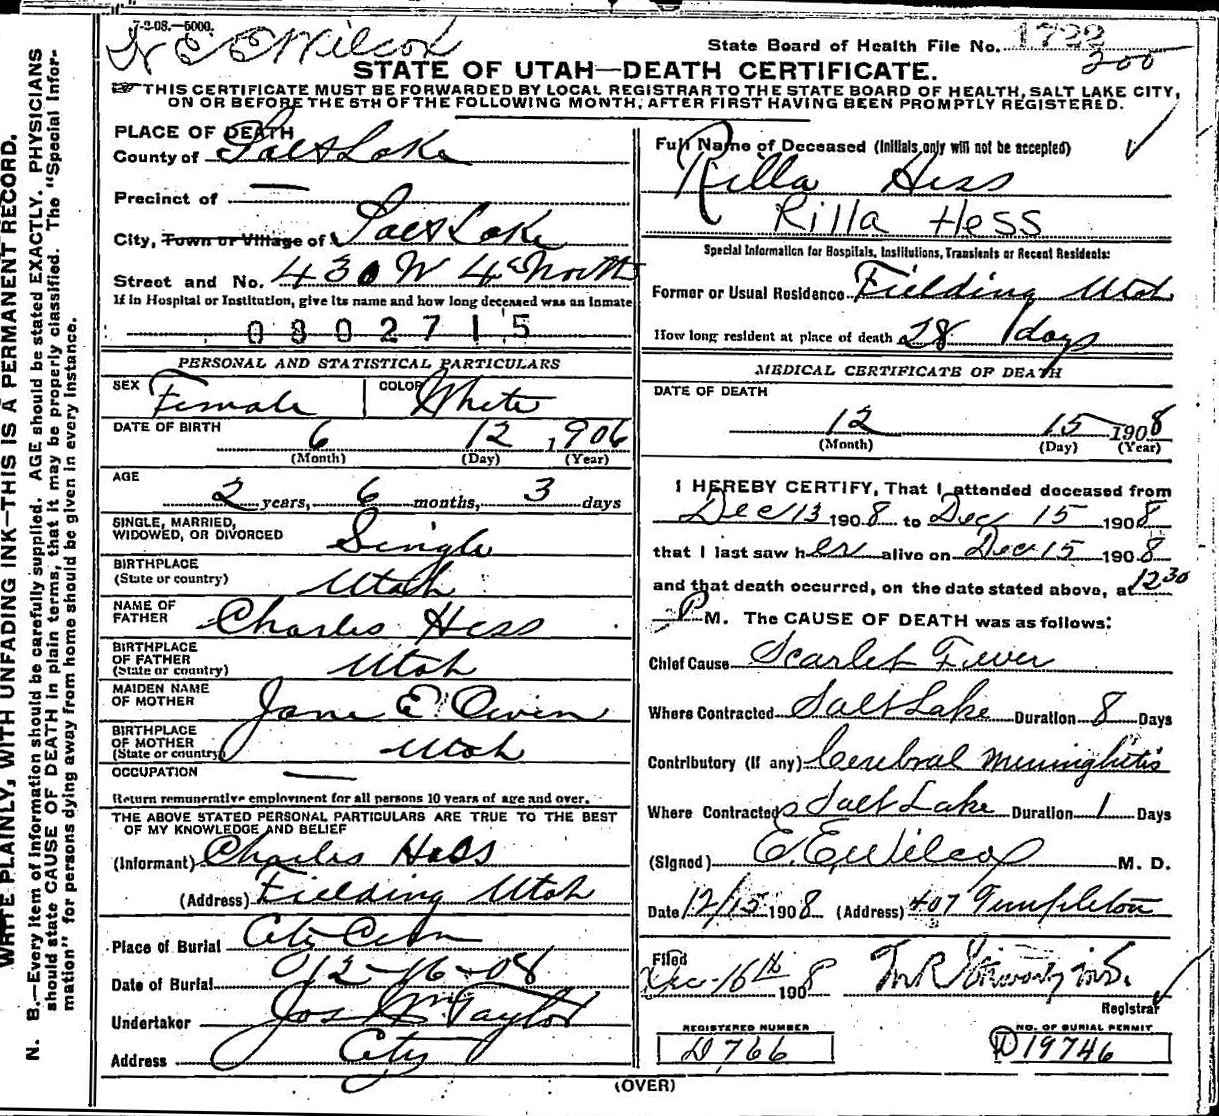 7-2-08.—5000.
E E Wilcox
State Board of Health File No. 1722
200
STATE OF UTAH—DEATH CERTIFICATE.
THIS CERTIFICATE MUST BE FORWARDED BY LOCAL REGISTRAR TO THE STATE BOARD OF HEALTH, SALT LAKE CITY,
ON OR BEFORE THE 5TH OF THE FOLLOWING MONTH, AFTER FIRST HAVING BEEN PROMPTLY REGISTERED.
WRITE PLAINLY, WITH UNFADING INK—THIS IS A PERMANENT RECORD.
N. B.—Every item of information should be carefully supplied. AGE should be stated EXACTLY. PHYSICIANS
should state CAUSE OF DEATH in plain terms, that it may be properly classified. The "Special Infor-
mation" for persons dying away from home should be given in every instance.
PLACE OF DEATH
County of Salt Lake
Precinct of —
City, Town or Village of Salt Lake
Street and No. 430 W 4th North
If in Hospital or Institution, give its name and how long deceased was an inmate
0802715
PERSONAL AND STATISTICAL PARTICULARS
SEX Female COLOR White
DATE OF BIRTH 6 12 1906
(Month) (Day) (Year)
AGE
2 years, 6 months, 3 days
SINGLE, MARRIED,
WIDOWED, OR DIVORCED Single
BIRTHPLACE
(State or country) Utah
NAME OF
FATHER Charles Hess
BIRTHPLACE
OF FATHER
(State or country) Utah
MAIDEN NAME
OF MOTHER Jane E. Owen
BIRTHPLACE
OF MOTHER
(State or country) Utah
OCCUPATION —
Return remunerative employment for all persons 10 years of age and over.
THE ABOVE STATED PERSONAL PARTICULARS ARE TRUE TO THE BEST
OF MY KNOWLEDGE AND BELIEF
(Informant) Charles Hess
(Address) Fielding Utah
Place of Burial City Cem
Date of Burial 12-16-08
Undertaker Jos Wm Taylor
Address City
Full Name of Deceased (Initials only will not be accepted)
Rilla Hess
Rilla Hess
Special Information for Hospitals, Institutions, Transients or Recent Residents:
Former or Usual Residence Fielding Utah
How long resident at place of death 28 days
MEDICAL CERTIFICATE OF DEATH
DATE OF DEATH
12 15 1908
(Month) (Day) (Year)
I HEREBY CERTIFY, That I attended deceased from
Dec 13 1908 to Dec 15 1908
that I last saw her alive on Dec 15 1908
and that death occurred, on the date stated above, at 12 30
P M. The CAUSE OF DEATH was as follows:
Chief Cause Scarlet Fever
Where Contracted Salt Lake Duration 8 Days
Contributory (If any) Cerebral Meninghitis
Where Contracted Salt Lake Duration 1 Days
(Signed) E. E. Wilcox M. D.
Date 12/15 1908 (Address) 407 Templeton
Filed
Dec-16th 1908
Registrar
REGISTERED NUMBER
D 766
NO. OF BURIAL PERMIT
D 19746
(OVER)